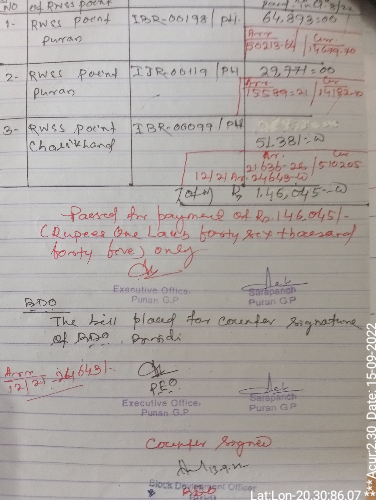 S/NO of RWSS point
1- RWSS point IBR-00198/PH 64,893=00
Puran Arr. Curr.
50213-64 / 14679-70
2- RWSS point IJR-00119/PH 29,771=00
Puran Arr. Cur.
15589=21 / 14182-70
3- RWSS point IBR-00099/PH
51.381-00
Arr. Cur
21636-26 / 510205
12/21 Ar. 24643-00
Total Rs 1.46,045-00
Passed for payment of Rs. 146.045/-
(Rupees One Lakh forty six thousand
forty five) only
Executive Officer Sarapanch
Puran G.P Puran G.P.
BDO
The bill placed for counter signature
of BDO
Arrr
12/21
PEO
Executive Officer Sarapanch
Puran G.P. Puran G.P.
Counter Signed
Block Development Officer
Lat:Lon-20.30:86.07
***Acur:2.30 Date: 15-09-2022